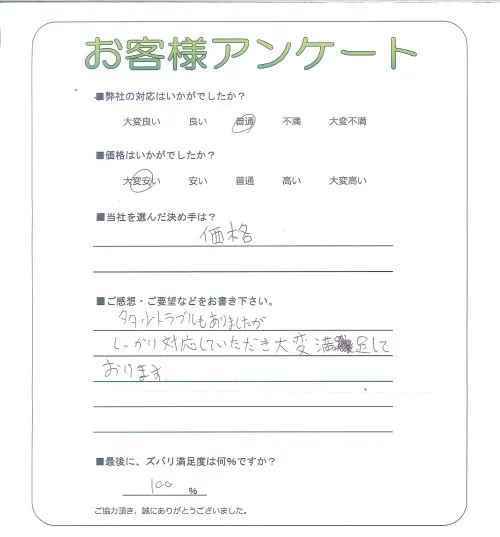 お客様アンケート
■弊社の対応はいかがでしたか?
大変良い 良い 普通 不満 大変不満
■価格はいかがでしたか?
大変安い 安い 普通 高い 大変高い
■当社を選んだ決め手は?
価格
■ご感想・ご要望などをお書き下さい。
トラブルもありましたが
しっかり対応していただき大変満足して
おります。
■最後に、ズバリ満足度は何%ですか?
100 %
ご協力頂き、誠にありがとうございました。